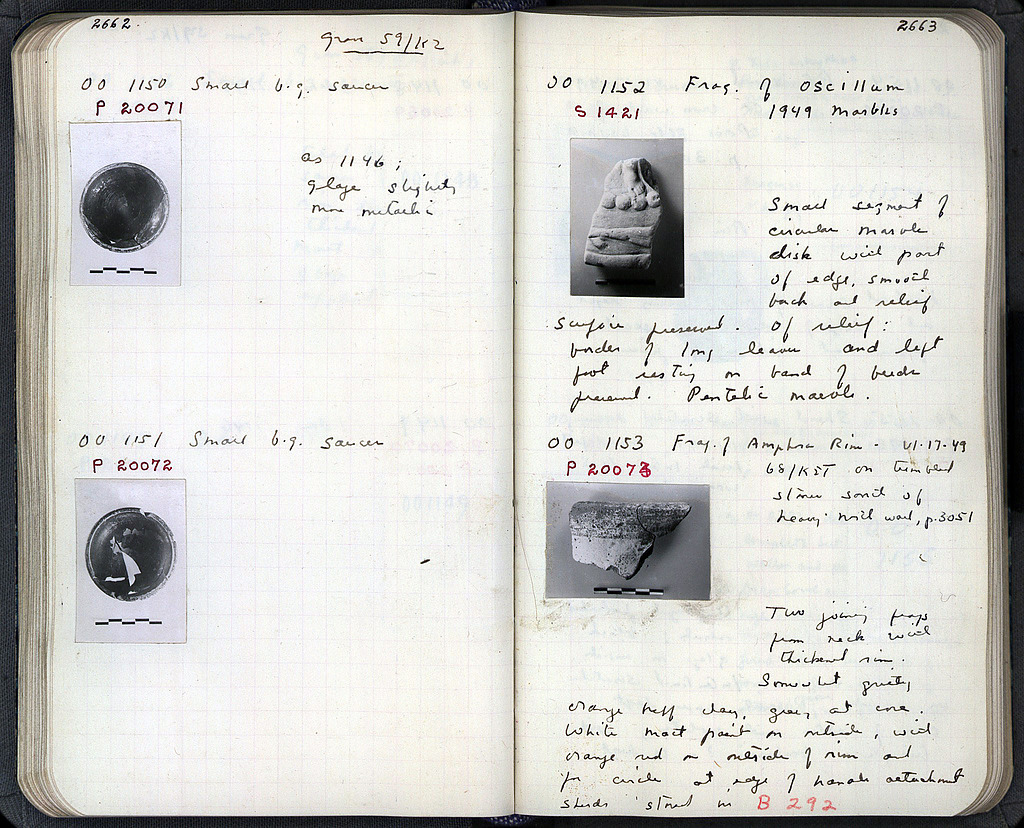 2662
Grave 59/ΚΖ
ΟΟ 1150 Small b.g. saucer
P 20071
as 1146;
glaze slightly
more metallic
ΟΟ 1151 Small b.g. saucer
P 20072
2663
ΟΟ 1152 Frag. of oscillum
S 1421 1949 marbles
Small segment of
circular marble
disk with part
of edge, smooth
back and relief
surface preserved. Of relief:
border of long leaves and left
foot resting on band of beads
preserved. Pentelic marble.
ΟΟ 1153 Frag. of Amphora Rim - VI-17-49
P 20073 68/ΚΣΤ on
stones south of
heavy mill wall, p. 3051
Two joining frags
from neck with
thickened rim.
Somewhat gritty
orange buff clay, grey at core.
White matt paint on outside, with
orange red on outside of rim and
for circle at edge of handle attachment
Sherds stored in B 292